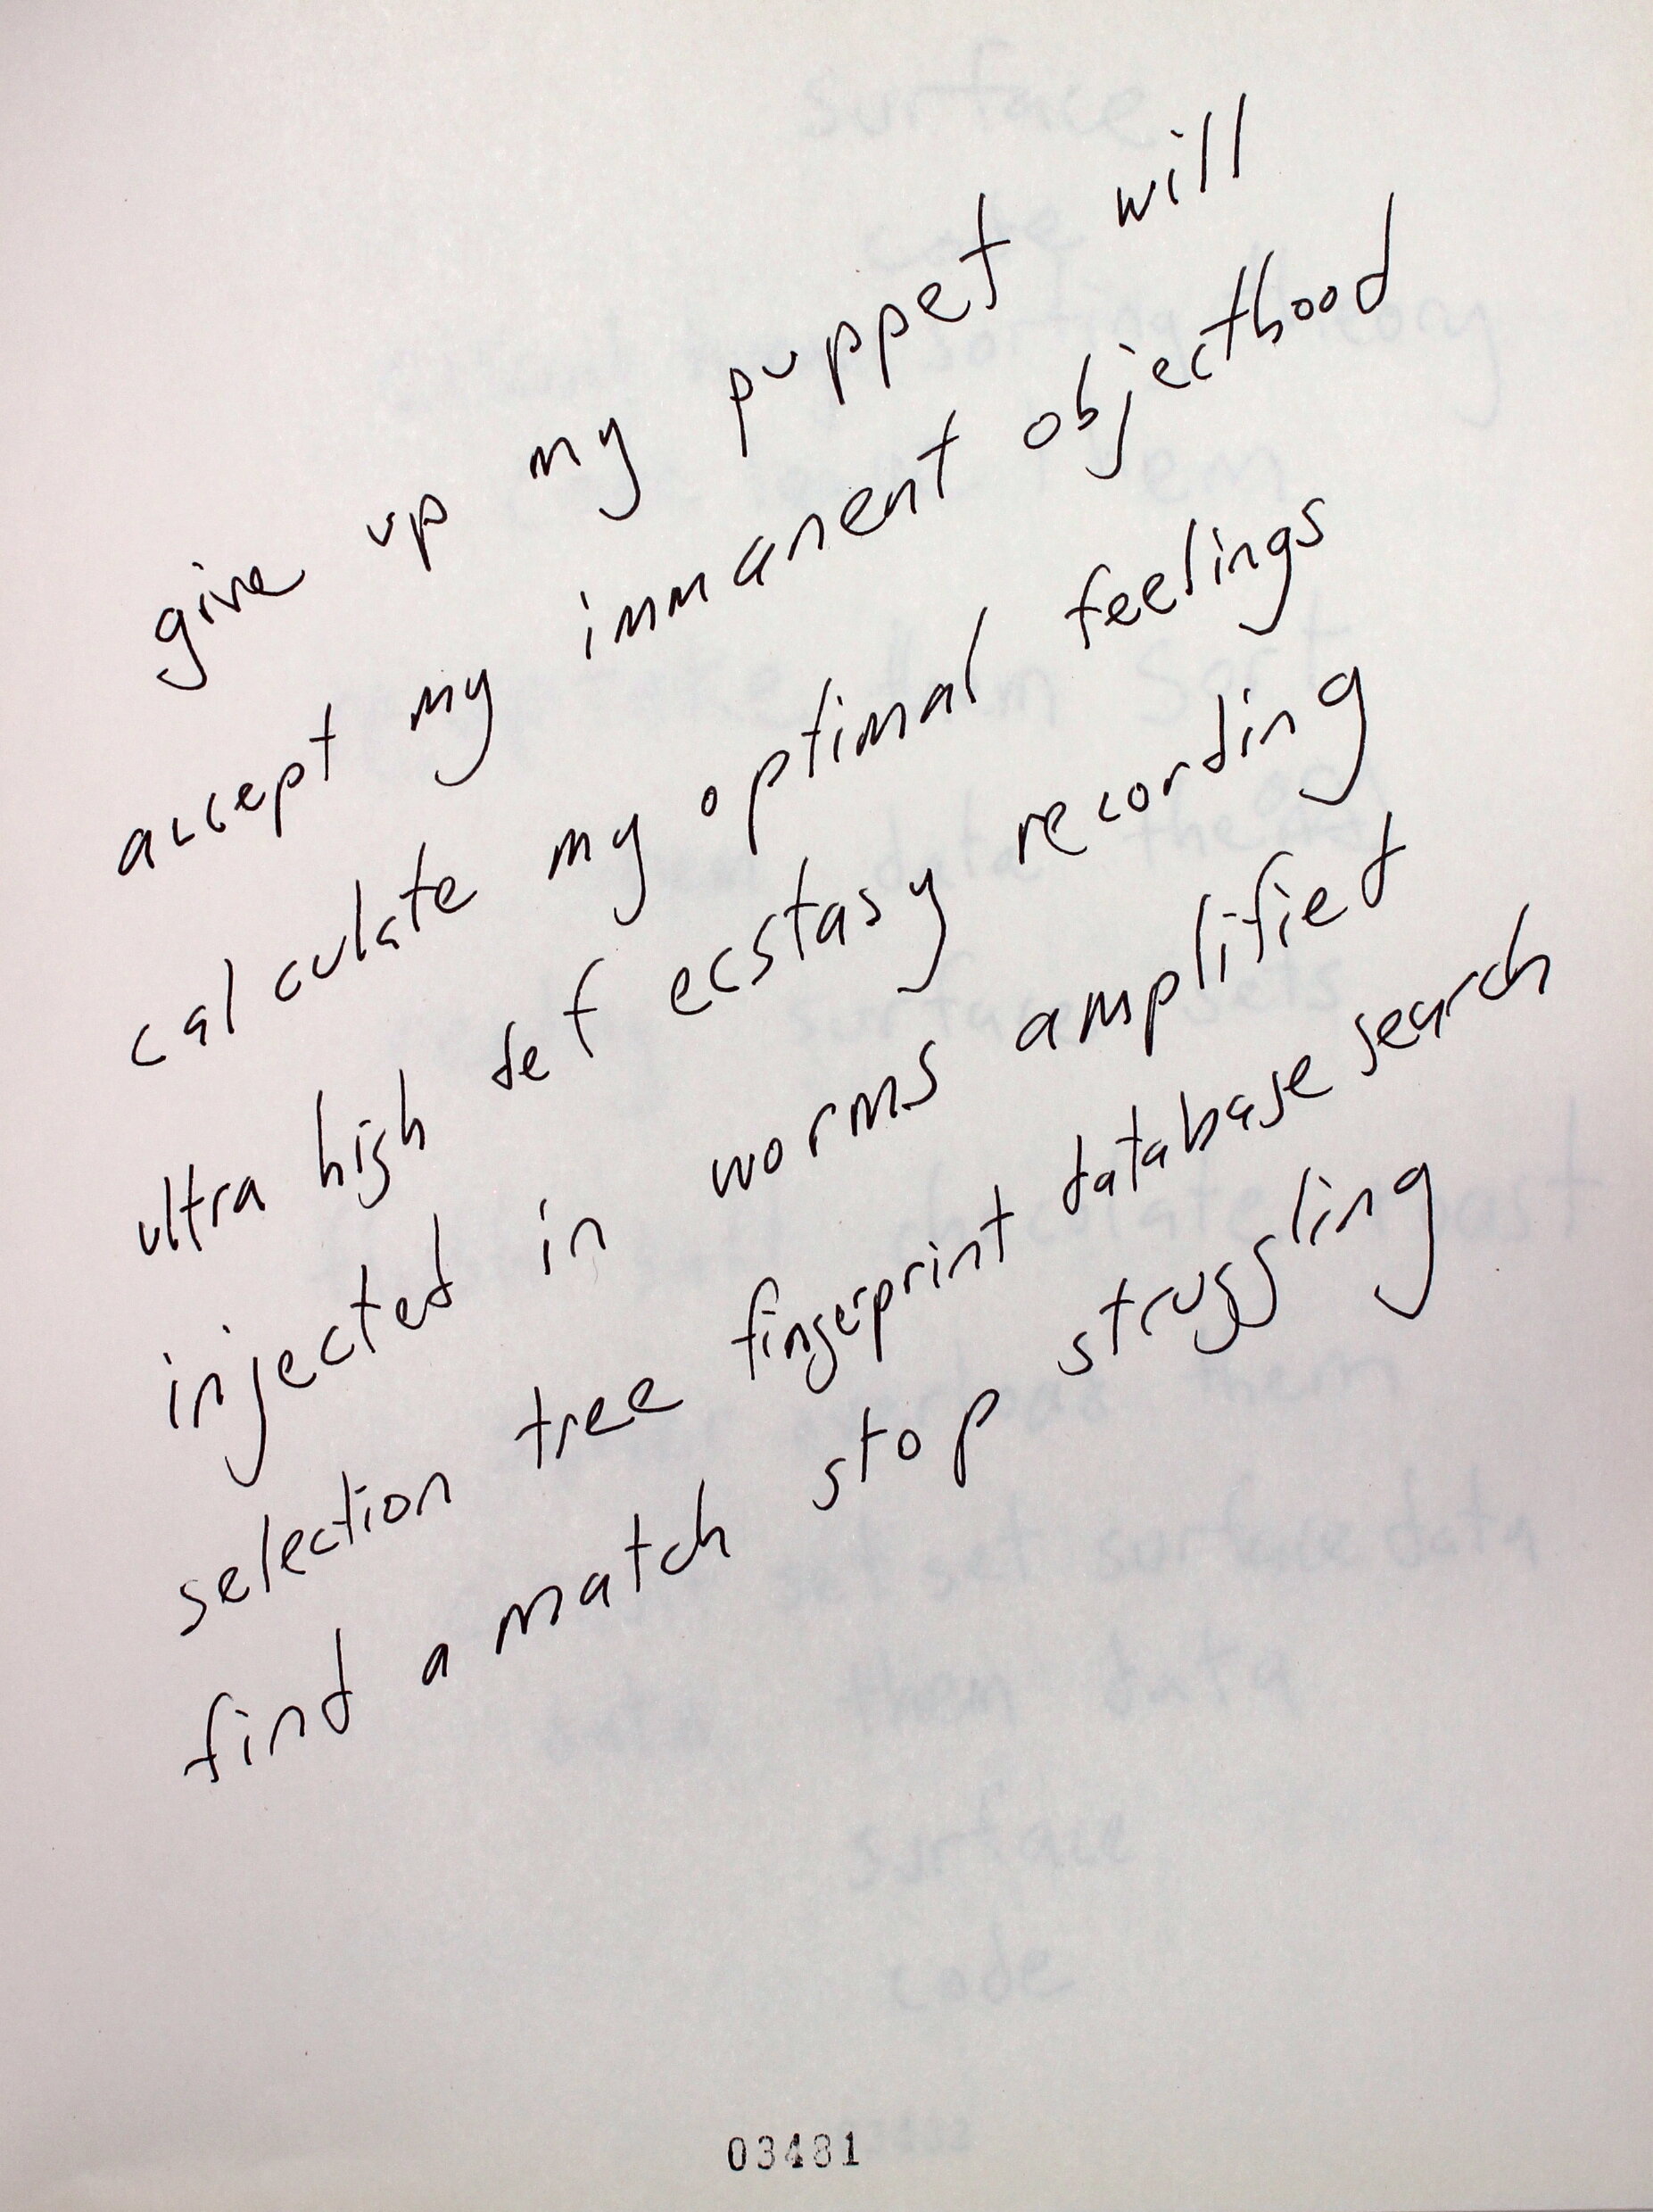 give up my puppet will
accept my immanent objecthood
calculate my optimal feelings
ultra high def ecstasy recording
injected in worms amplified
selection tree fingerprint database search
find a match stop struggling
03481